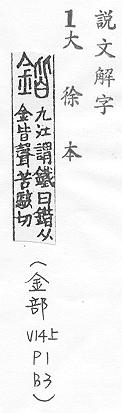 説文解字
1大徐本
鍇
九江謂鐵曰鍇从
金皆聲苦駭切
(金部
V14上
P1
B3)